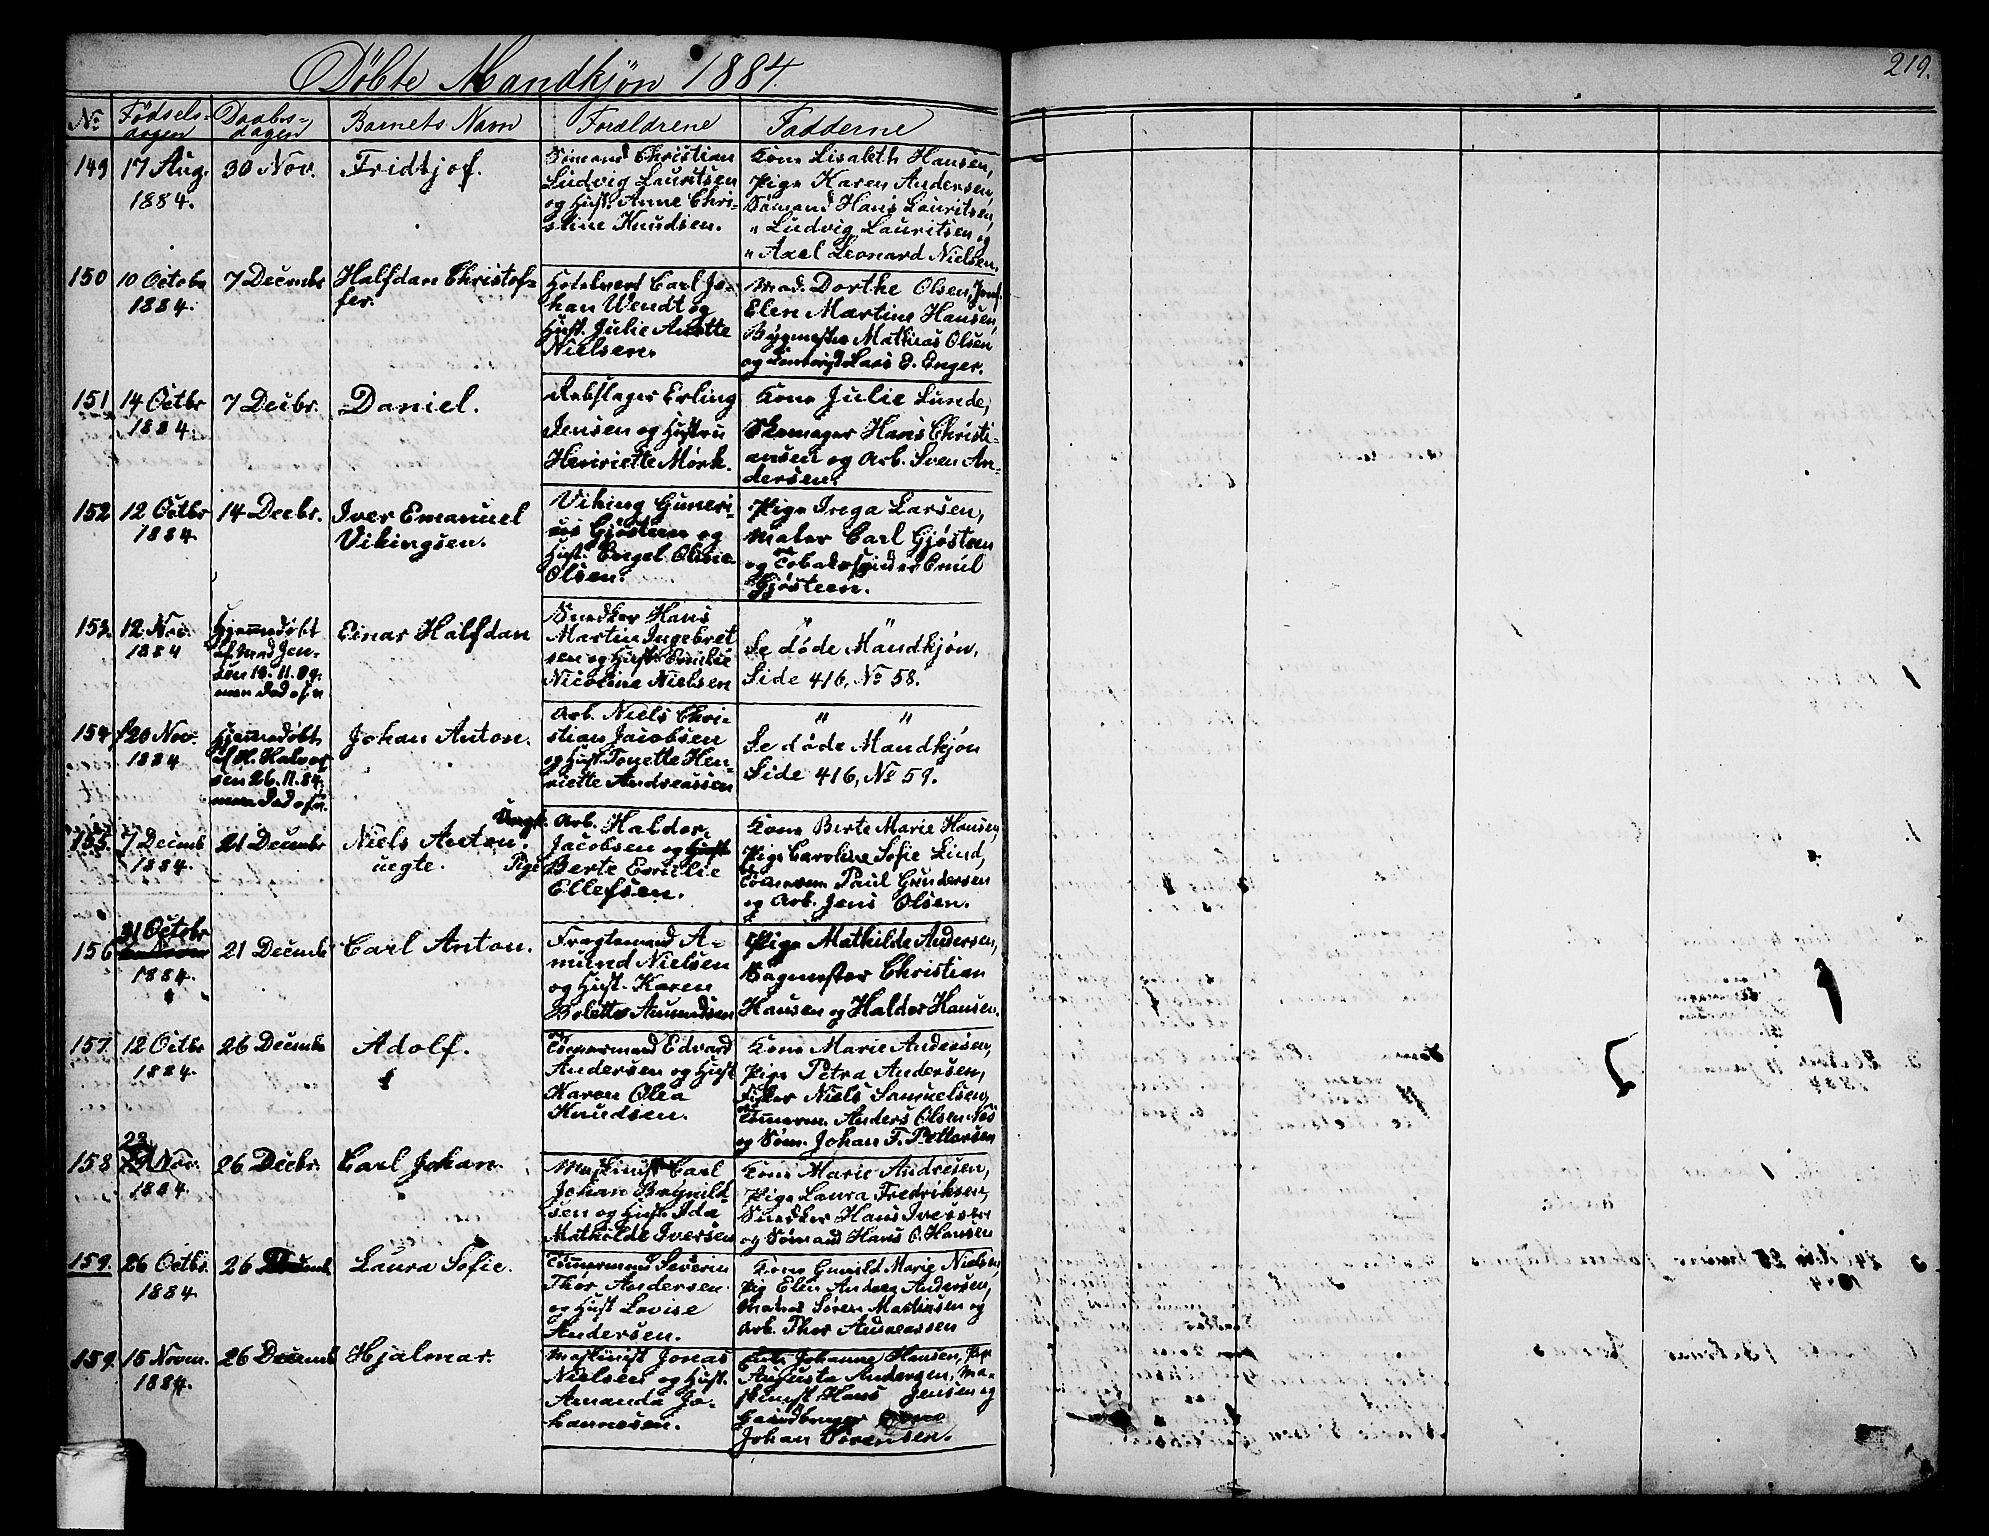 Døbte Mandkjøn 1884.
219.
No Fødsels-dagen Daabs-dagen Barnets Navn Forældrene Fadderne
149 17 Aug. 1884. 30 Nov. Fridtjof.
Sømand Christian
Ludvig Lauritsen
og Hust. Anne Chri-
stine Knudsen.
Kone Lisabeth Hansen,
Pige Karen Andersen,
Sømand Hans Lauritsen,
" Ludvig Lauritsen og
" Axel Leonard Nielsen.
150 10 Octobr 1884. 7 Decembr Halfdan Christof-
fer.
Hotelvert Carl Jo-
han Wendt og
Hust. Julie Anette
Nielsen.
Mad. Dorthe Olsen, Jomf.
Elen Martine Hansen,
Bygmester Mathias Olsen
og Lars E. Enger.
151 14 Octbr 1884. 7 Decbr. Daniel.
Rebslager Erling
Jensen og Hustru
Henriette Mørk.
Kone Julie Lunde,
Skomager Hans Christi-
ansen og Arb. Sven An-
dersen.
152 12 Octbr 1884. 14 Decbr. Iver Emanuel
Vikingsen.
Viking Guneri-
us Gjøsteen og
Hust. Engel Olivie
Olsen.
Pige Inga Larsen,
Maler Carl Gjøsteen
og Tobaksspinder Emil
Gjøsteen.
153. 12 Nov. 1884 Einar Halfdan
Hjemmedøbt
af Mad Jen-
sen 19.11.84.
men død o.s.v
Snedker Hans
Martin Ingebret
sen og Hust. Emilie
Nicoline Nielsen
" "
Se døde Mandkjøn,
Side 416, No 58.
154 20 Nov. 1884 Johan Anton.
Hjemmedøbt
af H. Halvor
sen 26.11.84.
men død o.s.v.
Arb. Niels Chri-
stian Jacobsen
og Hust. Tonette Hen-
riette Andreassen
" "
Se døde Mandkjøn
Side 416, No 59.
155. 7 Decemb 1884. 21 Decembr Niels Anton.
uegte.
Ungk. Arb. Haldor
Jacobsen og Hust
Pige Berte Emilie
Ellefsen.
Kone Berte Marie Hansen,
Pige Caroline Sofie Lind,
Tømmerm Paul Gundersen
og Arb. Jens Olsen.
156 21 Octobr 1884. 21 Decemb Carl Anton.
Fragtemand A-
mund Nielsen
og Hust. Karen
Bolette Amundsen
Pige Mathilde Andersen,
Sagmester Christian
Hansen og Haldor Hansen.
157. 12 Octbr 1884. 26 Decemb Adolf.
Tømmermand Edvard
Andersen og Hust
Karen Olea
Knudsen.
Kone Marie Andersen,
Pige Petra Andersen,
Fisker Niels Samuelsen,
Tømmerm. Anders Olsen Næs
og Søm. Johan F. Pettersen
158 23 Nov. 1884. 26 Decbr. Carl Johan.
Maskinist Carl
Johan Brynild-
sen og Hust. Ida
Mathilde Iversen
Kone Marie Andresen,
Pige Laura Fredriksen,
Snedker Hans Iversen
og Sømand Hans O. Hansen
159. 26 Octbr. 1884. 26 Decemb Laura Sofie.
Tømmermand Severin
Thor Andersen
og Hust Lovise
Andersen.
Kone Gunild Marie Nielsen,
Pig Elen Andrea Andersen,
Matros Søren Martinsen og
Arb. Thor Andreassen
159. 15 Novm. 1884. 26 Decemb Hjalmar.
Maskinist Jonas
Nielsen og Hust.
Amanda Jo-
hannesen.
Johanne Hansen, Pige
Augusta Andersen, Ma-
skinist Hans Jensen og
Gaardbruger
Johan Sørensen.